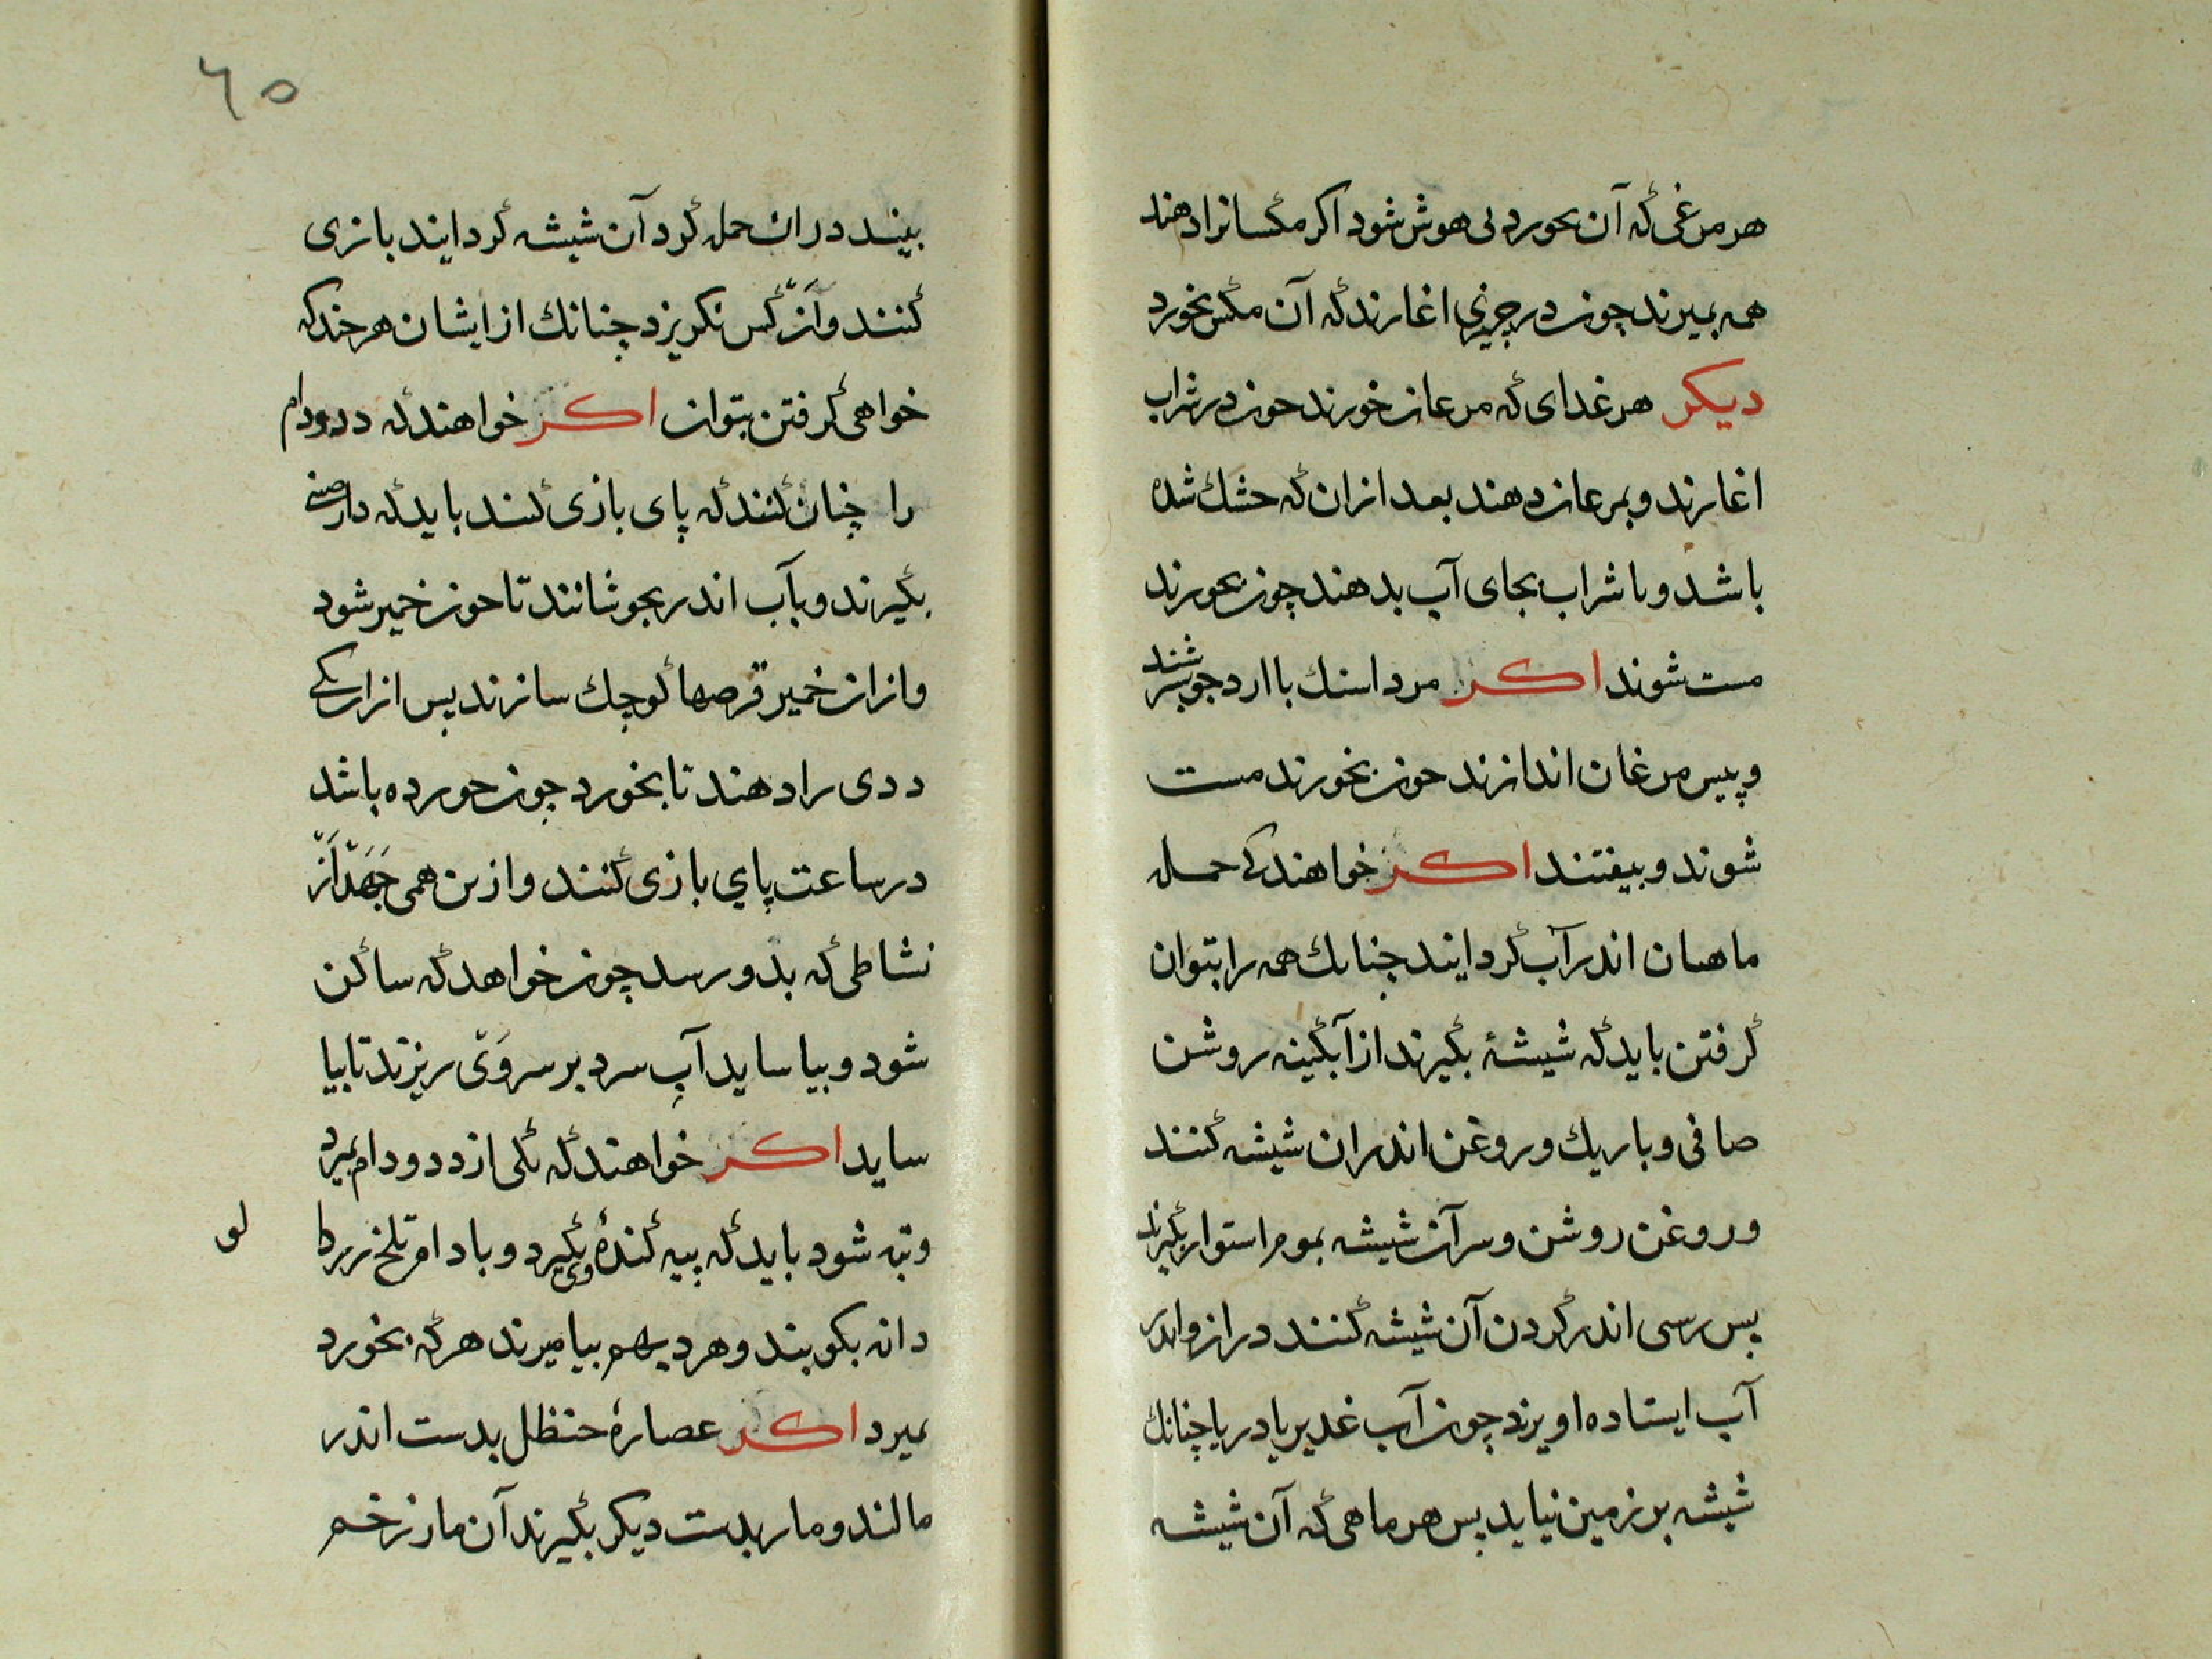 هر مرغی که آن بخورد بی هوش شود اکر مکسانرا دهند
همه بمیرند چون در چیزی اغارند که آن مکس بخورد
دیکر هر غدای که مرغان خورند حون در شراب
اغارند و بمرغان دهند بعد ازان که خشك شده
باشد و با شراب بجای آب بدهند چون بخورند
مست شوند اکر مرداسنك با ارد جو بسرشند
و پیس مرغان اندازند حون بخورند مست
شوند و بیفتند اکر خواهند کی حمله
ماهیان اندر آب کرد ایند چنانك همه را بتوان
کرفتن باید که شیشهٔ بکیرند از آبکینه روشن
صافی و باریك و روغن اندران شیشه کنند
و روغن روشن و سر آن شیشه بموم استوار بکیرند
پس رسی اندر کردن آن شیشه کنند دراز و اندر
آب ایستاده اویزند چون آب غدیر یا دریا چنانك
شیشه بر زمین نیاید پس هر ماهی که آن شیشه
٦٥
بیند دران حمله کرد آن شیشه کرد ایند بازی
کنند و از کس نکریزد چنانك از ایشان هر چند که
خواهی کرفتن بتوان اکر خواهند که دد و دام
را چنان کنند که پای بازی کنند باید که دارصنی
بکیرند و بآب اندر بجوشانند تا حون خمیر شود
و ازان خمیر قرصها کوچك سازند پس ازان یکی
ددی را دهند تا بخورد چون حورده باشد
در ساعت پای بازی کنند و ازین همی جهد از
نشاطی که بذو رسد چون خواهد که ساکن
شود و بیاساید آب سرد بر سر وی ریزند تا بیا
ساید اکر خواهند که یکی از دد و دام بمیرد
و تبه شود باید که پیه کندهٔ وی بکیرد و بادام تلخ زردا
لو
دانه بکوبند و هر د بهم بیامیرند هر که بخورد
بمیرد اکر عصارهٔ حنظل بدست اندر
مالند و مار بدست دیکر بکیرند آن مار زخم